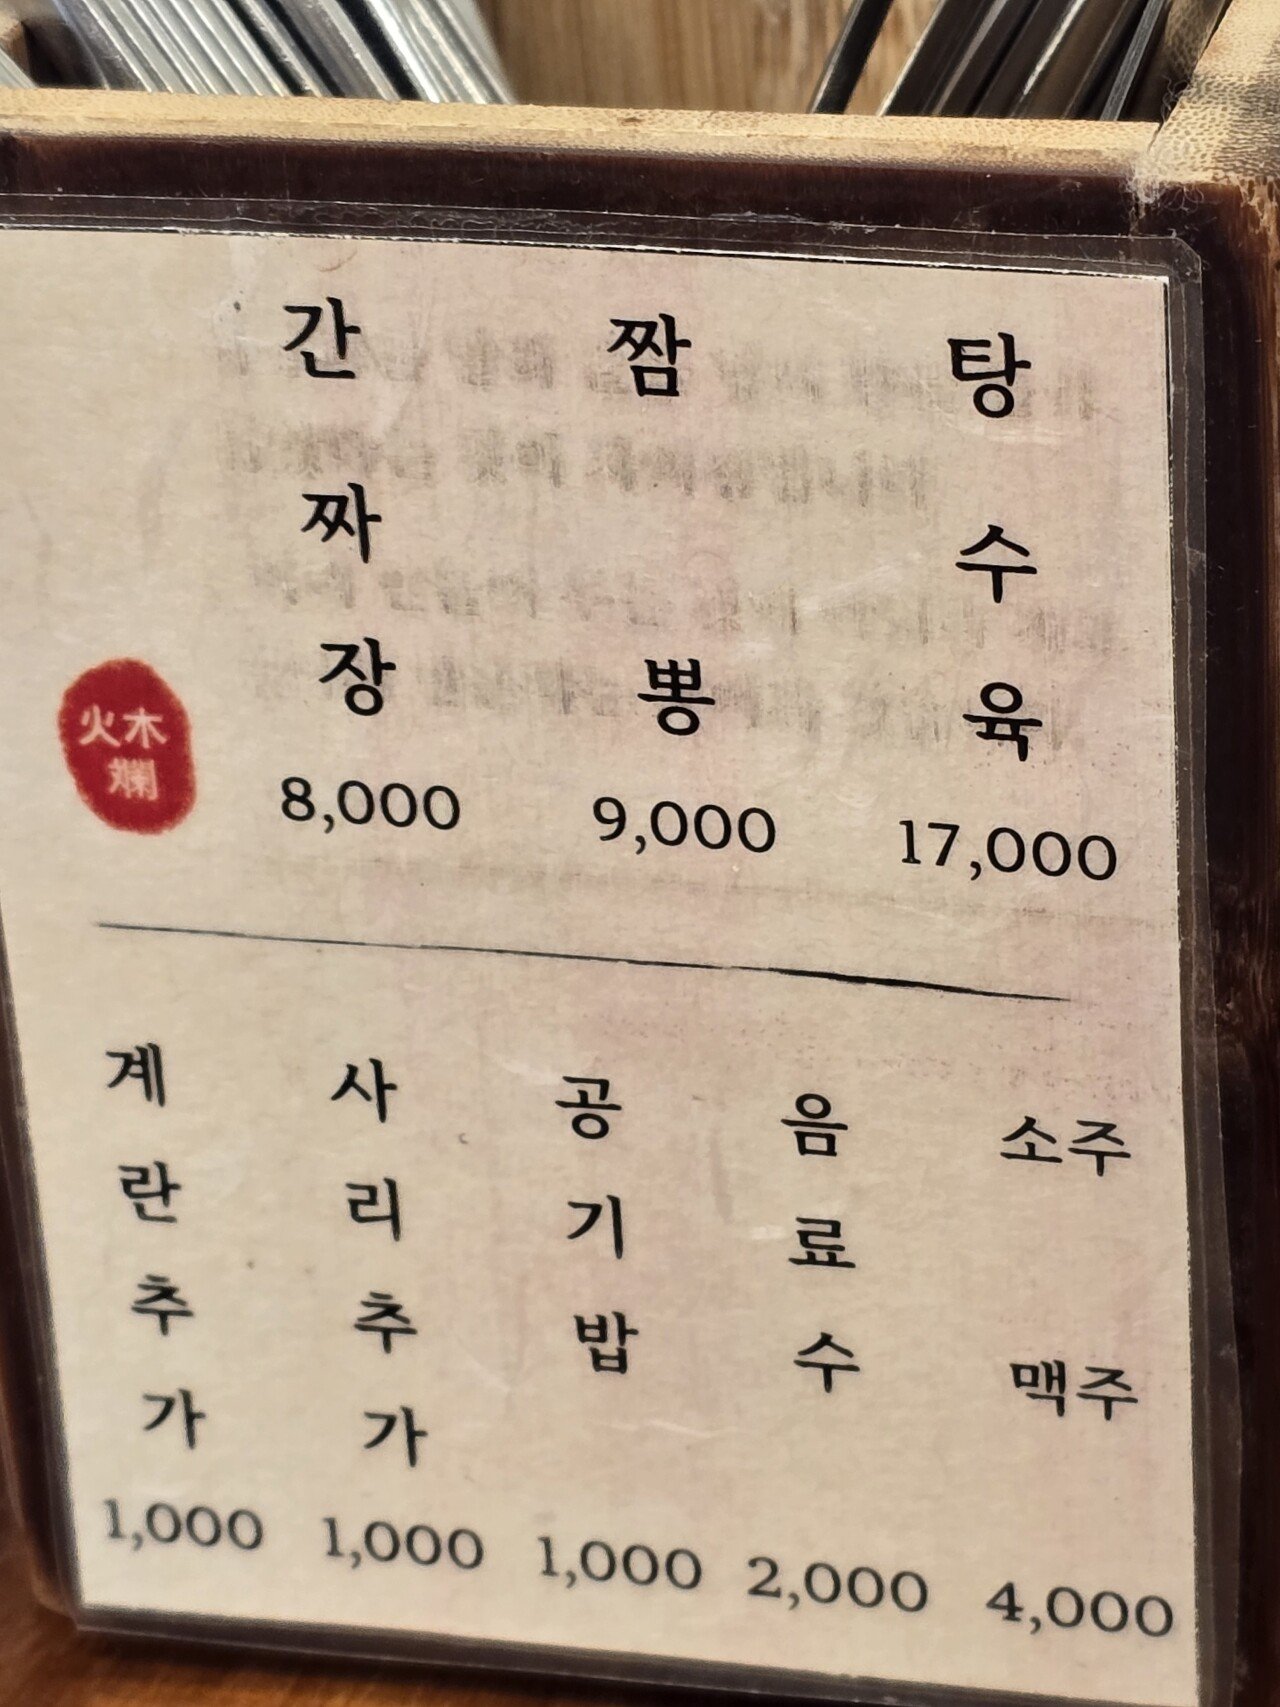 간짜장
8,000
짬뽕
9,000
탕수육
17,000
火木
爛
계란추가
1,000
사리추가
1,000
공기밥
1,000
음료수
2,000
소주
맥주
4,000